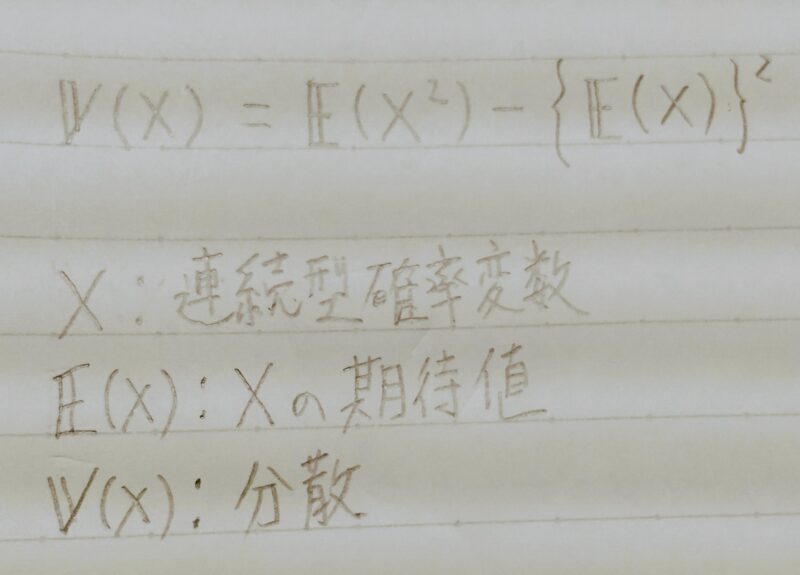 𝕍(X) = 𝔼(X²) - {𝔼(X)}²
X : 連続型確率変数
𝔼(X) : Xの期待値
𝕍(X) : 分散